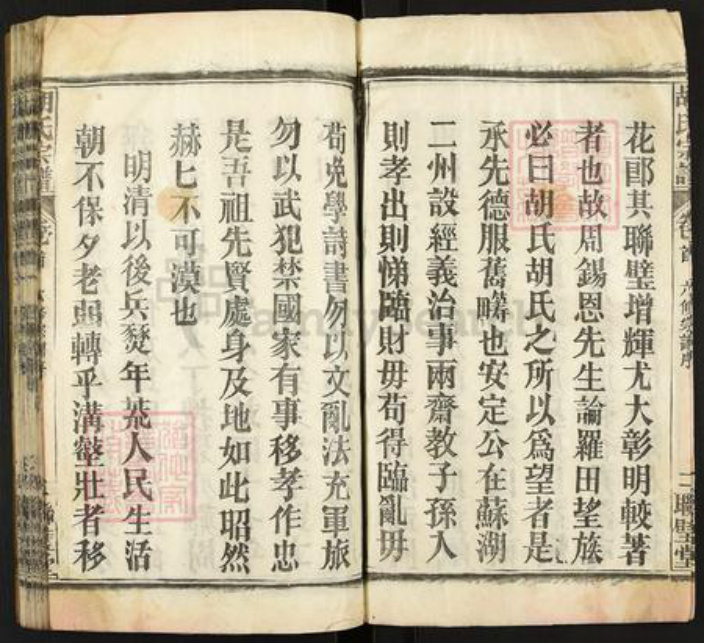 花郎其聯璧增輝尤大彰明較著
者也故周錫恩先生論羅田望族
必曰胡氏胡氏之所以爲望者是
承先德服舊疇也安定公在蘇湖
二州設經義治事兩齋教子孫入
則孝出則悌臨財毋苟得臨亂毋
苟免學詩書勿以文亂法充軍旅
勿以武犯禁國家有事移孝作忠
是吾祖先賢處身及地如此昭然
赫匕不可漠也
明清以後兵燹年荒人民生活
朝不保夕老弱轉乎溝壑壯者移
胡氏宗譜
卷首
六修宗譜序
二聯璧堂
胡氏宗譜
familysearch